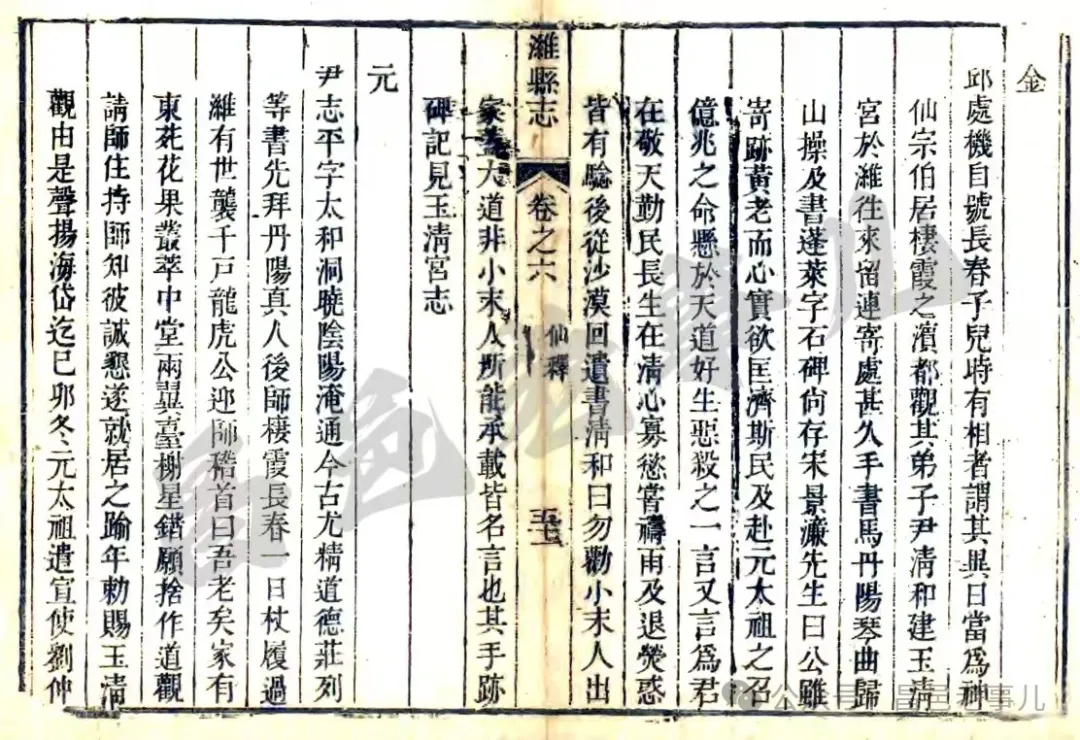 金
邱處機自號長春子兒時有相者謂其異日當爲神
仙宗伯居棲霞之濵都觀其弟子尹清和建玉清
宮於濰徃來留連寄處甚久手書馬丹陽琴曲歸
山操及書蓬萊字石碑尙存宋景濂先生曰公雖
寄跡黃老而心實欲匡濟斯民及赴元太祖之召
億兆之命懸於天道好生惡殺之一言又言爲君
在敬天勤民長生在清心寡慾嘗禱雨及退熒惑
皆有驗後從沙漠回遺書清和曰勿勸小末人出
濰縣志
卷之六
仙釋
家蓋大道非小末人所能承載皆名言也其手跡
碑記見玉清宮志
元
尹志平字太和洞曉陰陽淹通今古尤精道德莊列
等書先拜丹陽真人後師棲霞長春一日杖履過
濰有世襲千戸龍虎公迎師稽首曰吾老矣家有
東苑花果叢萃中堂兩翼臺榭星錯願捨作道觀
請師住持師知彼誠懇遂就居之踰年勅賜玉清
觀由是聲揚海岱迄巳卯冬元太祖遣宣使劉仲
公众号
昌邑
事儿